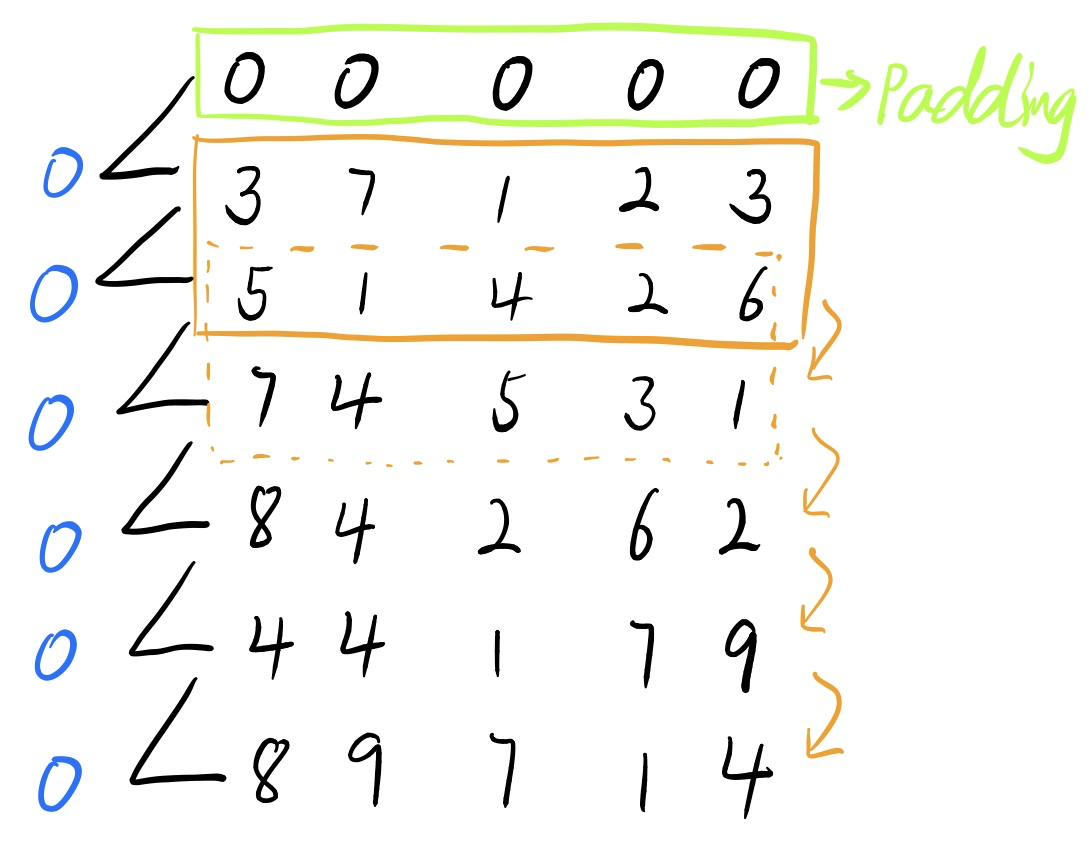 0 0 0 0 0 → Padding
0 3 7 1 2 3
0 5 1 4 2 6
0 7 4 5 3 1
0 8 4 2 6 2
0 4 4 1 7 9
0 8 9 7 1 4